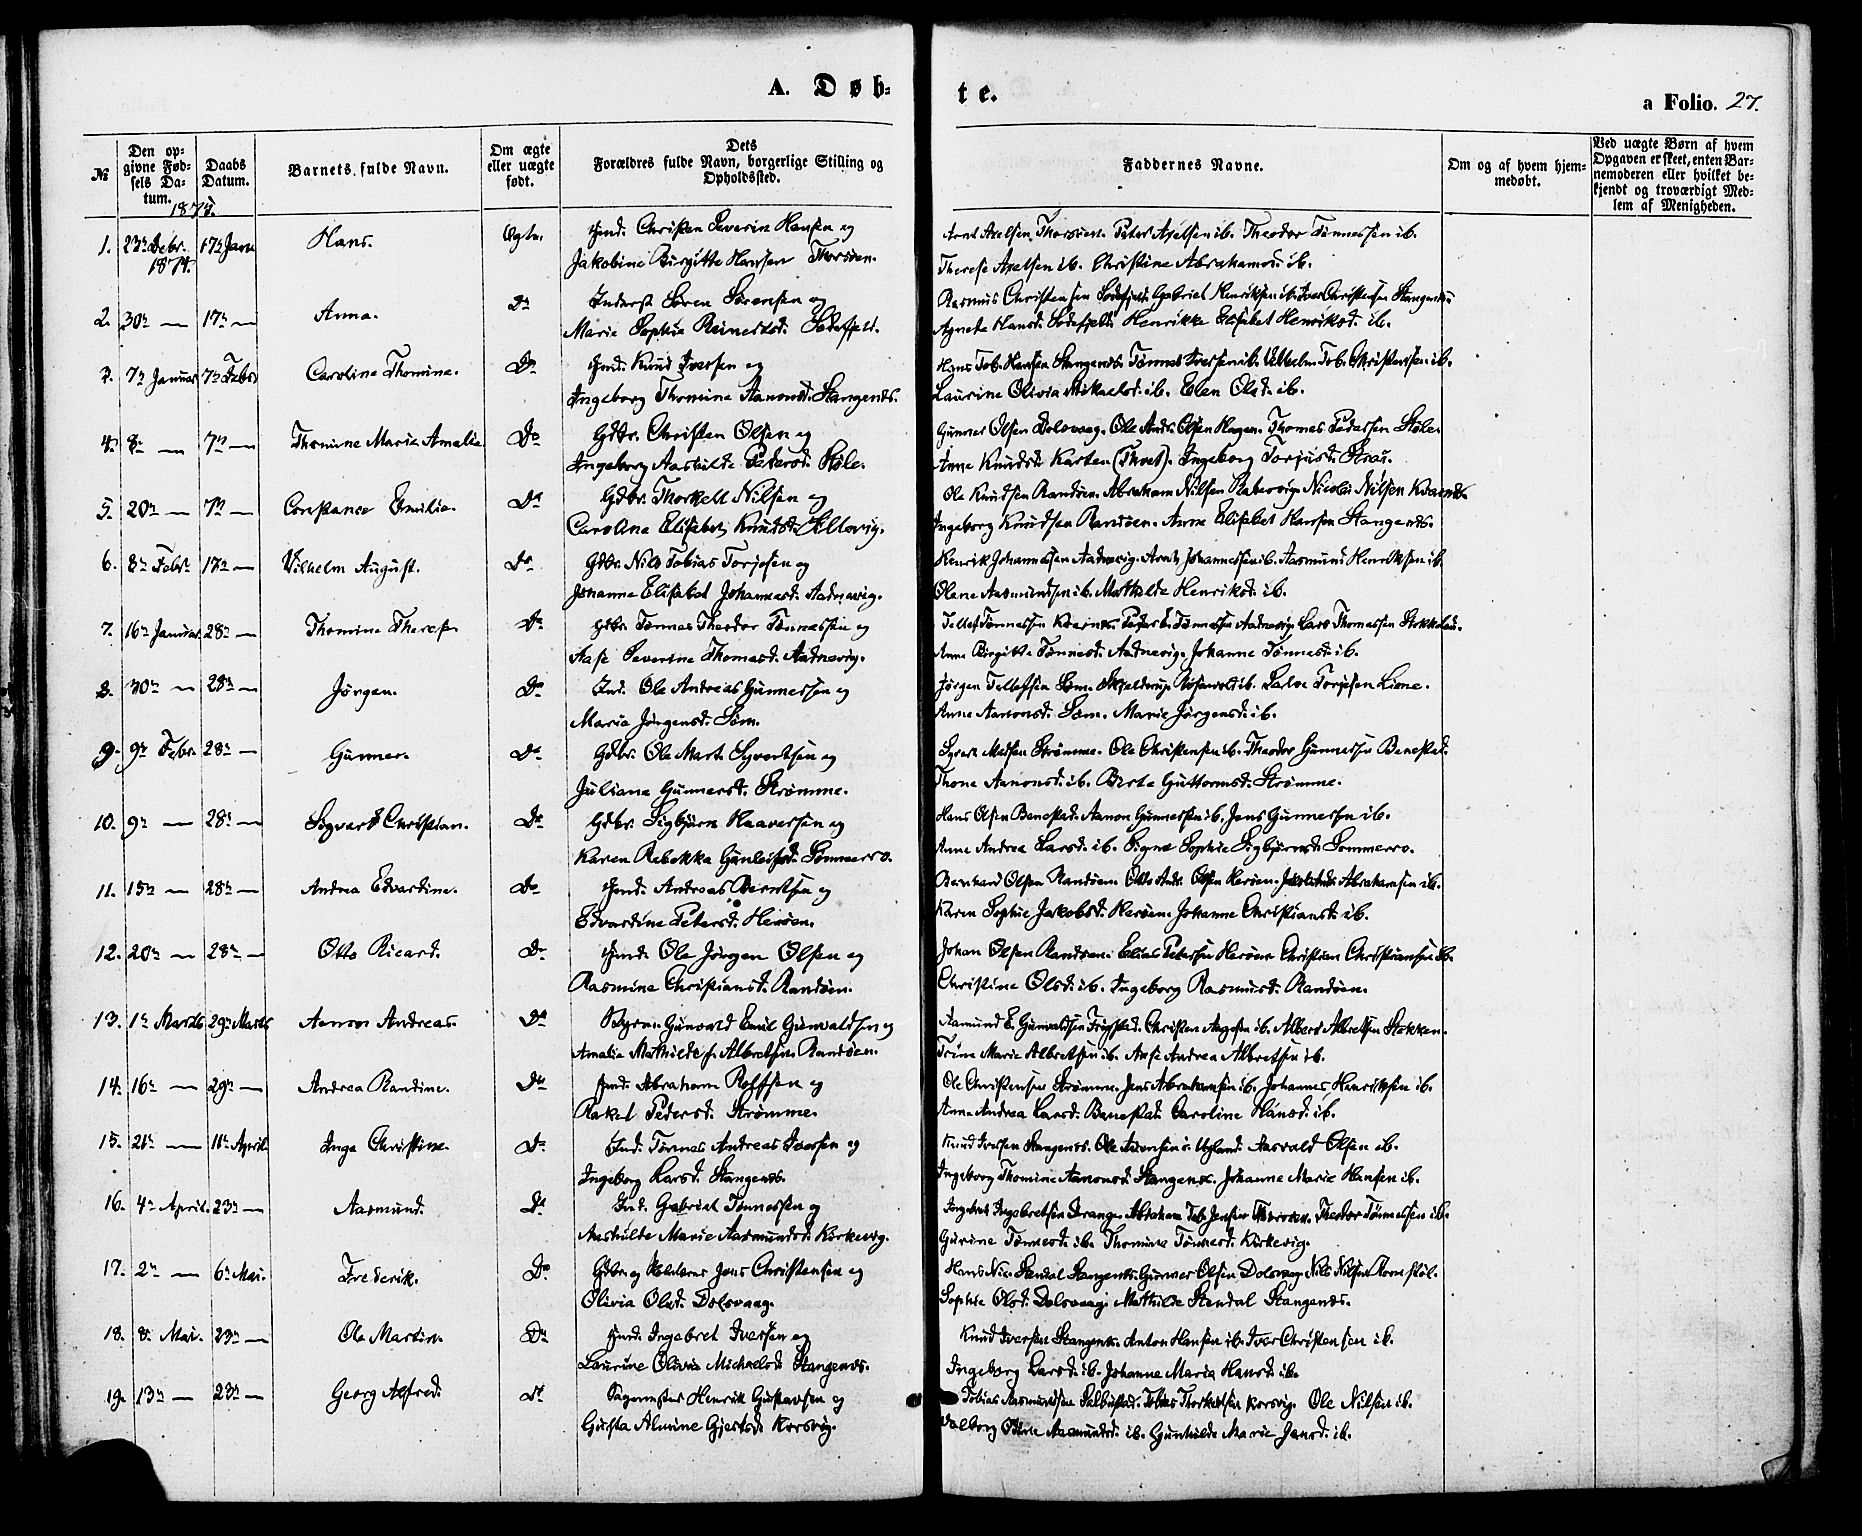 A. Døb-
te.
a Folio. 27.
№
Den op-
givne Fød-
sels Da-
tum.
Daabs
Datum.
Barnets fulde Navn.
Om ægte
eller uægte
født.
Dets
Forældres fulde Navn, borgerlige Stilling og
Opholdssted.
Faddernes Navne.
Om og af hvem hjem-
medøbt.
Ved uægte Børn af hvem
Opgaven er skeet, enten Bar-
nemoderen eller hvilket be-
kjendt og troværdigt Med-
lem af Menigheden.
1875.
1. 23de Debr. 17de Janr Hans. Ægte. Ind. Christen Severin Hansen og
1874. Jakobine Birgitte Hansen Thorsøen.
Arnt Axelsen Thorsøen. Peter Axelsen ib. Theodor Tønnessen ib.
Therese Axelsen ib. Christine Abrahamsd. ib.
2. 30te — 17de — Anna. Do Inderst Søren Sørensen og
Marie Sophie Reinertsd. Sodefjeld.
Rasmus Christensen Sodefjeld. Gabriel Henriksen ib. Iver Christensen Stangenæs
Agnete Hansd. Sodefjeld. Henrikke Elisabet Henriksd. ib.
3. 7de Januar 7de Febr Caroline Thomine. Do Ind. Knud Iversen og
Ingeborg Thomine Aanonsd. Stangenæs.
Hans Tob. Hansen Stangenæs. Tønnes Iversen ib. Vilhelm Tob. Christensen ib.
Laurine Olivia Mikaelsd. ib. Elen Olsd. ib.
4. 8de — 7de — Thomine Marie Amalie Do Gdbr. Christen Olsen og
Ingeborg Aashilde Pedersd. Støle.
Gunner Olsen Dolsvaag. Ole Andr. Olsen Hagen. Thomas Pedersen Støle.
Anne Knudsd. Karten (Thvet). Ingeborg Torjusd. Strai.
5. 20de — 7de — Constance Emilie. Do Gdbr. Thorkell Nilsen og
Caroline Elisabet Knudsd.
Ole Knudsen Randøen. Abraham Nilsen Nicolai Nilsen
Ingeborg Knudsen Randøen. Anne Elisabet Hansen Stangenæs.
6. 8de Febr. 17de — Vilhelm August. Do Gdbr. Nils Tobias Torjesen og
Johanne Elisabet Johannesd. Aadnevig.
Henrik Johannessen Aadnevig. Arnt Johannessen ib. Aasmund Henriksen ib.
Olene Aasmundsen ib. Mathilde Henriksd. ib.
7. 16de Januar. 28de — Thomine Therese Do Gdbr. Tønnes Theodor Tønnessen og
Aase Severine Thomasd. Aadnevig.
Tellef Tønnessen Peder E. Tønnessen Aadnevig. Lars Thomassen
Anne Birgitte Tønnesd. Aadnevig. Johanne Tønnesd. ib.
8. 30te — 28de — Jørgen. Do Ind. Ole Andreas Gunnersen og
Marie Jørgensd. Søm.
Jørgen Tellefsen Søm. ib. Salve Torjesen Liene.
Anne Aanonsd. Søm. Marie Jørgensd. ib.
9. 9de Febr. 28de — Gunner. Do Gdbr. Ole Mart. Syvertsen og
Juliane Gunnersd. Strømme.
Syvert Madsen Strømme. Ole Christensen ib. Theodor Gunnersen Benestad.
Thone Aanonsd. ib. Berte Guttormsd. Strømme.
10. 9de — 28de — Sigvard Christian. Do Gdbr. Sigbjørn Haaversen og
Karen Rebekka Gunleifsd. Sommero.
Hans Olsen Benestad. Aanon Gunnersen ib. Jens Gunnersen ib.
Anne Andrea Larsd. ib. Signe Sophie Sigbjørnsd. Sommero.
11. 15de — 28de — Andrea Edvardine. Do Ind. Andreas Berntsen og
Edvardine Petersd. Herøen.
Bernhard Olsen Randøen. Otto Andr. Olsen Herøen. Abrahamsen ib.
Karen Sophie Jakobsd. Herøen. Johanne Christiansd. ib.
12. 20de — 28de — Otto Ricard. Do Ind. Ole Jørgen Olsen og
Rasmine Christiansd. Randøen.
Johan Olsen Randøen. Elias Petersen Herøen Christian Christiansen ib.
Christine Olsd. ib. Ingeborg Rasmusd. Randøen.
13. 1ste Marts 29de Marts Aanon Andreas. Do Gunvald Emil Gunvaldsen og
Amalie Mathilde f. Albretsen Randøen.
Aamund E. Gunvaldsen Christen Aagesen ib. Albert Albretsen
Trine Marie Albretsen ib. Aase Andrea Albretsen ib.
14. 16de — 29de — Andrea Randine. Do Ind. Abraham Rolfsen og
Rakel Pedersd. Strømme.
Ole Christensen Strømme. Jens Abrahamsen ib. Johannes Henriksen ib.
Anne Andrea Larsd. Benestad. Caroline Hansd. ib.
15. 21de — 11te April Inga Christine. Do Ind. Tønnes Andreas Iversen og
Ingeborg Larsd. Stangenæs.
Knud Iversen Stangenæs. Ole Uglend. Aasvald Olsen ib.
Ingeborg Thomine Aanonsd. Stangenæs. Johanne Marie Hansen ib.
16. 4de April. 23de — Aasmund. Do Ind. Gabriel Tønnessen og
Aashilde Marie Aasmundsd. Kirkevig.
Ingebret Ingebretsen Drange. Abraham Tob. Jensen Thorsøen. Theodor Tønnessen ib.
Gurine Tønnesd. ib. Thomine Tønnesd. Kirkevig.
17. 2de — 6te Mai. Frederik. Do Gdbr. og Jens Christensen og
Olivia Olsd. Dolsvaag.
Hans Nic. Stendal Stangenæs. Gunner Olsen Dolsvaag Nils Nilsen
Sophie Olsd. Dolsvaag. Mathilde Stendal Stangenæs.
18. 8de Mai. 23de — Ole Martin. Do Ind. Ingebret Iversen og
Laurine Olivia Michaelsd. Stangenæs.
Knud Iversen Stangenæs. Anton Hansen ib. Iver Christensen ib.
Ingeborg Larsd. ib. Johanne Marie Hansd. ib.
19. 13de — 23de — Georg Alfred. Do Sagmester Henrik Gustavsen og
Gusta Almine Gjertsd. Korsvig.
Tobias Aasmundsen Tobias Thorkelsen Korsvig. Ole Nilsen ib.
Valborg Oline Aasmundsd. ib. Gunhilde Marie Jensd. ib.